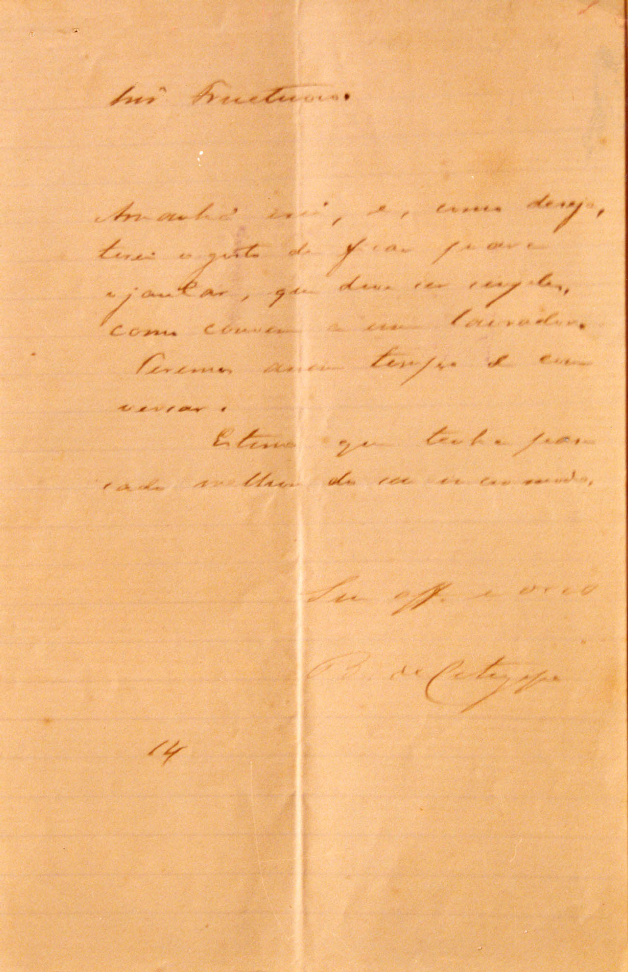 Snr Fructuoso.
Amanhã irei, e, como deseja,
terei o gosto de ficar para
o jantar, que deve ser simples,
como convem a um lavrador.
Teremos assim tempo de con
versar.
Estimo que tenha pas
sado melhor do seu incommodo.
Seu aff. e
B. de Cotegipe
14